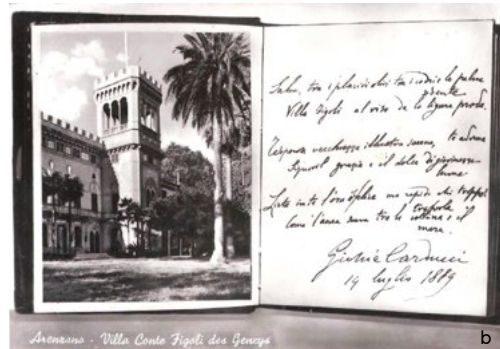 Salve, tra i placidi olivi tra i cedri e le palme
sedente
Villa Figoli al riso de la ligure proda.
vecchiezza serena, ti adorna
Signoril grazia e il dolce di giovinezza
lume
Lieta in te l'ora ma rapida ahi
trasvola
come l'aura tra la collina e il
mare.
Giosuè Carducci
14 luglio 1889
Arenzano - Villa Conte Figoli des Geneys
b